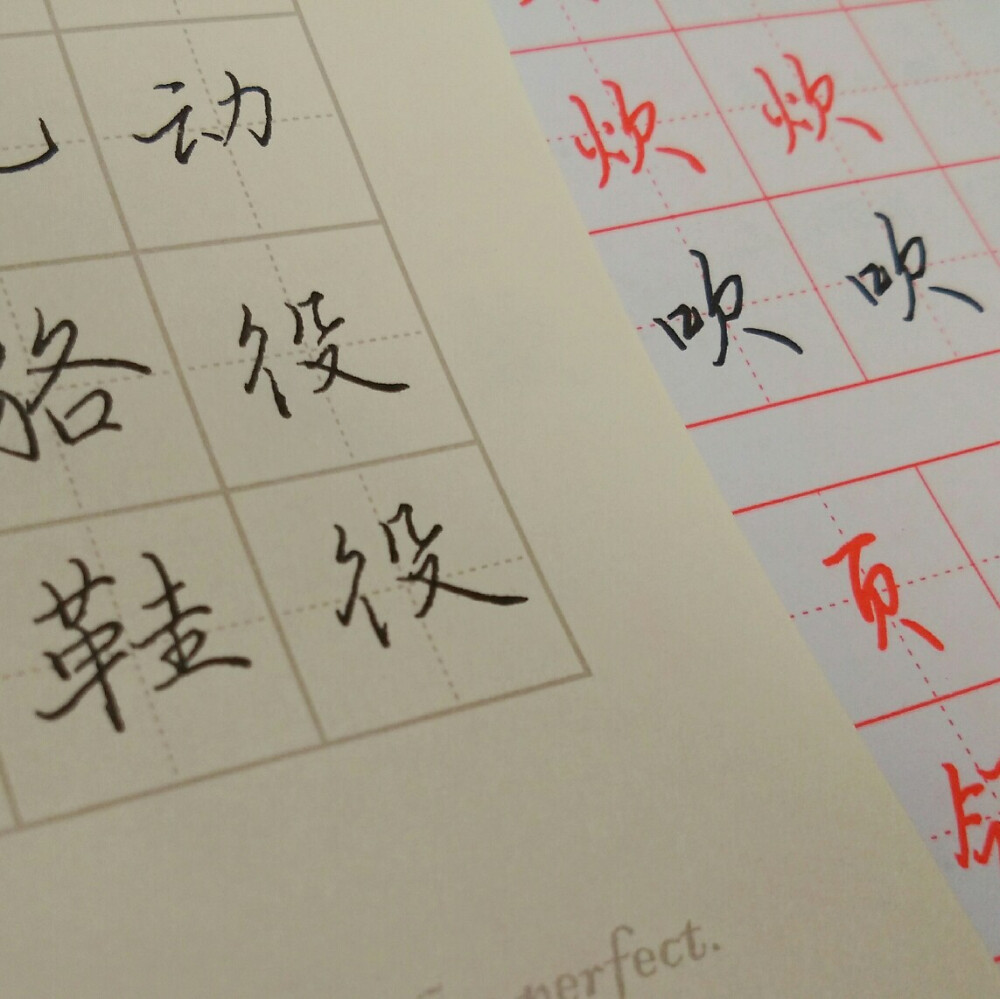 动
路 役
鞋 役
perfect.
炊 炊
吹 吹
页